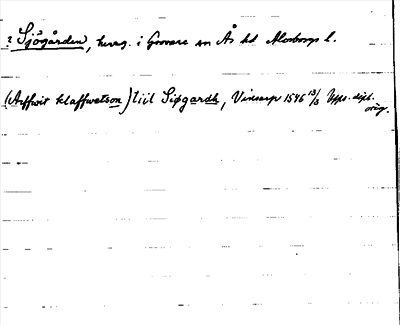 ? Sjögården, herrg. i Grovare sn Ås hd Älvsborgs l.
(Arffwit Klaffwetson) tiil Siøgardh, Vinsarp 1546 13/3 Upps. dipl. orig.